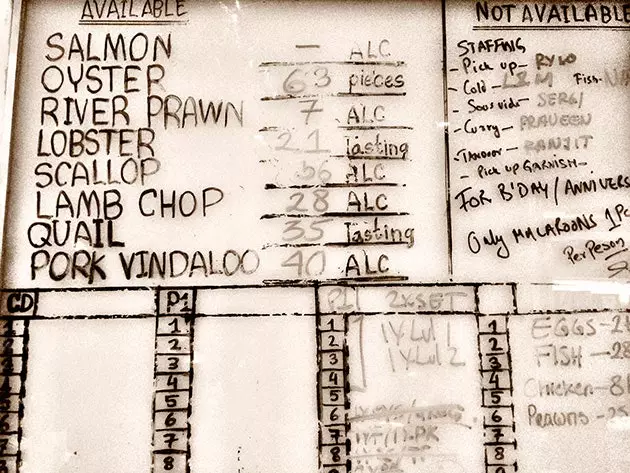 AVAILABLE
SALMON - ALC
OYSTER 63 pieces
RIVER PRAWN 7 ALC
LOBSTER 21 tasting
SCALLOP 36 ALC
LAMB CHOP 28 ALC
QUAIL 35 tasting
PORK VINDALOO 40 ALC
NOT AVAILABLE
STAFFING
- Pick up-
- Cold- Fish-
- Sous vide- SERGI
- Curry- PRAVEEN
- Tandoor- RANJIT
- Pick up GARNISH-
FOR B'DAY/ANNIVERS
Only MACAROONS 1Pc
Per Person
CD
1
2
3
4
5
6
7
8
P1
1
2
3
4
5
6
7
8
PL 2XSET
1 1V Lvl 1
2 1V Lvl 2
3
4
5
6
7
8
1 EGGS-2
2 FISH-28
3
4 Chicken-8
5 Prawns-25
6
7
8